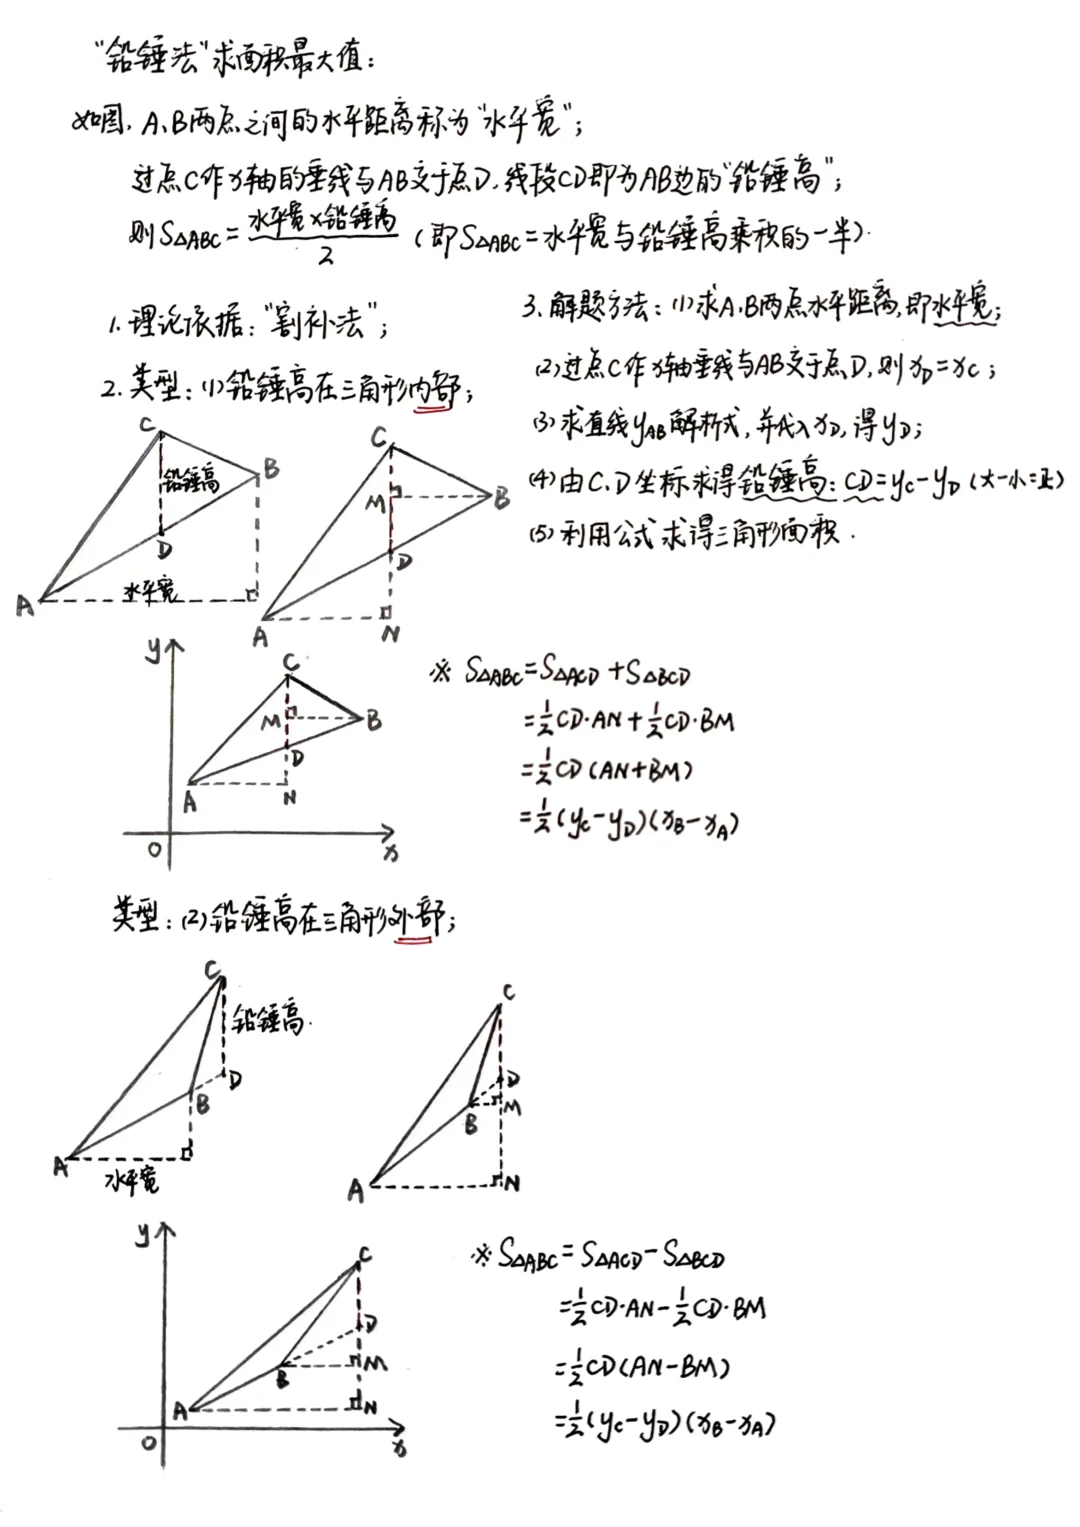 “铅锤法”求面积最大值:
如图, A、B两点之间的水平距离称为“水平宽”;
过点C作x轴的垂线与AB交于点D, 线段CD即为AB边的“铅锤高”;
则S△ABC = 水平宽×铅锤高/2 (即S△ABC=水平宽与铅锤高乘积的一半).
1. 理论依据: “割补法”;
2. 类型: (1)铅锤高在三角形内部;
C
铅锤高
B
D
水平宽
A
C
M
B
D
A
N
3. 解题方法: (1)求A、B两点水平距离, 即水平宽;
(2)过点C作x轴垂线与AB交于点D, 则xD=xC;
(3)求直线yAB解析式, 并代入xD, 得yD;
(4)由C、D坐标求得铅锤高: CD=yC-yD (大-小=正)
(5)利用公式求得三角形面积.
y
C
M
B
D
A
N
O
x
※ S△ABC=S△ACD+S△BCD
=½CD·AN+½CD·BM
=½CD(AN+BM)
=½(yC-yD)(xB-xA)
类型: (2)铅锤高在三角形外部;
C
铅锤高.
D
B
A
水平宽
C
D
M
B
A
N
y
C
D
M
B
A
N
O
x
※ S△ABC=S△ACD-S△BCD
=½CD·AN-½CD·BM
=½CD(AN-BM)
=½(yC-yD)(xB-xA)